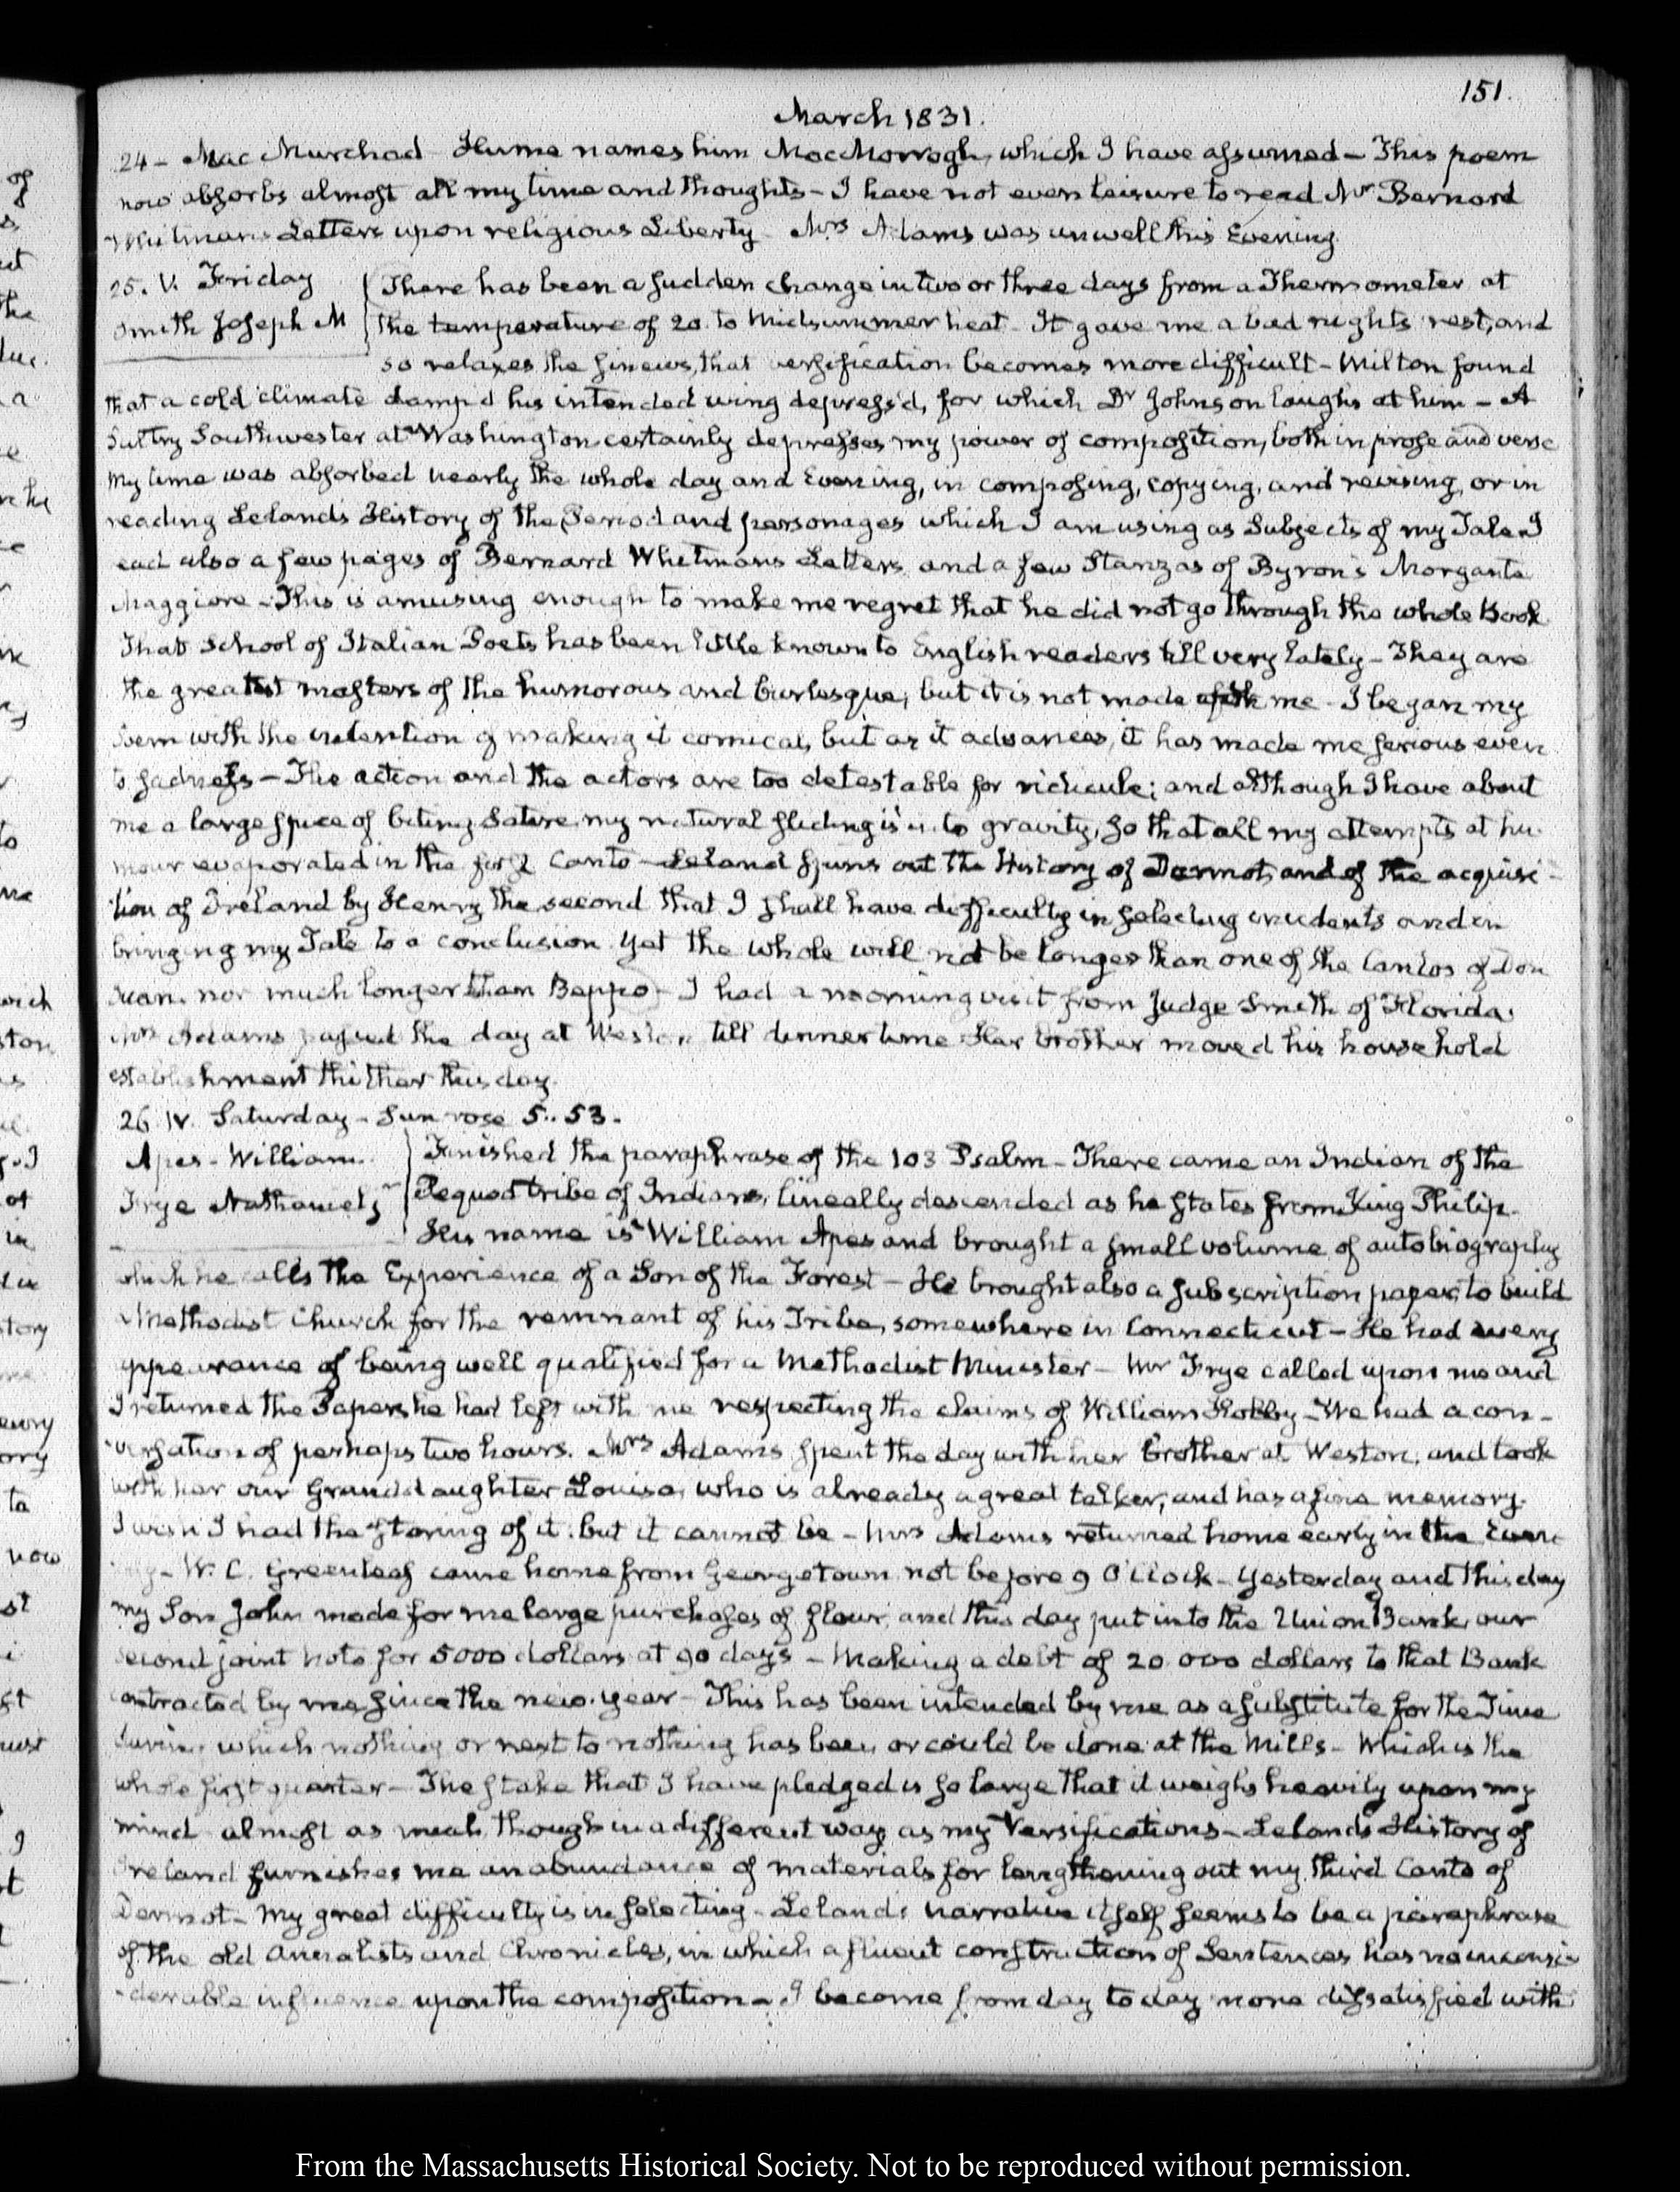 151.
March 1831.
24 - Mac Murchad Hume names him MacMorrogh, which I have assumed - This poem
now absorbs almost all my time and thoughts - I have not even leisure to read Mr Bernard
Whitman's Letters upon religious Liberty - Mrs Adams was unwell this Evening.
25. V. Friday
Smith Joseph M
There has been a sudden change in two or three days from a Thermometer at
the temperature of 20. to Midsummer heat - It gave me a bad nights rest, and
so relaxes the sinews, that versification becomes more difficult - Milton found
that a cold climate damp'd his intended wing depress'd, for which Dr Johnson laughs at him - A
Sultry Southwester at Washington certainly depresses my power of composition, both in prose and verse
My time was absorbed nearly the whole day and Evening, in composing, copying, and revising, or in
reading Leland's History of the Period and personages which I am using as Subjects of my Tale I
read also a few pages of Bernard Whitman's Letters, and a few Stanzas of Byron's Morgante
Maggiore - This is amusing enough to make me regret that he did not go through the whole Book
That School of Italian Poets has been little known to English readers till very lately - They are
the greatest masters of the humorous and burlesque, but it is not made me - I began my
Poem with the intention of making it comical, but as it advances, it has made me serious even
to sadness - The action and the actors are too detestable for ridicule; and although I have about
me a large spice of biting Satire, my natural sliding is to gravity, so that all my attempts at hu-
mour evaporated in the first Canto - Leland spins out the History of Dermot, and of the acquisi-
tion of Ireland by Henry the second that I shall have difficulty in selecting incidents and in
bringing my Tale to a conclusion. Yet the whole will not be longer than one of the Cantos of Don
Juan. nor much longer than Beppo - I had a morning visit from Judge Smith of Florida.
Mrs Adams passed the day at Weston till dinner time Her brother moved his household
establishment thither this day.
26. IV. Saturday - Sun rose 5..53.
Apes - William.
Frye Nathaniel
Finished the paraphrase of the 103 Psalm - There came an Indian of the
Pequod tribe of Indians, lineally descended as he states from King Philip.
His name is William Apes and brought a small volume of autobiography
which he calls the Experience of a Son of the Forest - He brought also a subscription paper, to build
a Methodist Church for the remnant of his Tribe, somewhere in Connecticut - He had every
appearance of being well qualified for a Methodist Minister - Mr Frye called upon me and
I returned the Papers he had left with me respecting the claims of William Hobby - We had a con-
versation of perhaps two hours. Mrs Adams spent the day with her brother at Weston, and took
with her our Grand daughter Louisa, who is already a great talker, and has a fine memory.
I wish I had the storing of it. but it cannot be - Mrs Adams returned home early in the Even-
ing - W. C. Greenleaf came home from Georgetown not before 9 O'Clock - Yesterday and this day
my Son John made for me large purchases of flour, and this day put into the Union Bank, our
second joint note for 5000 dollars at 90 days - Making a debt of 20.000 dollars to that Bank
contracted by me since the new-year - This has been intended by me as a substitute for the Time
during which nothing or next to nothing has been or could be done at the Mills - Which is the
whole first quarter - The stake that I have pledged is so large that it weighs heavily upon my
mind almost as much, though in a different way as my Versifications - Leland's History of
Ireland furnishes me an abundance of materials for lengthening out my third Canto of
Dermot - My great difficulty is in selecting - Leland's narrative itself seems to be a paraphrase
of the old Annalists and Chronicles, in which a fluent construction of Sentences has no inconsi-
-derable influence upon the composition - I become from day to day more dissatisfied with
From the Massachusetts Historical Society. Not to be reproduced without permission.